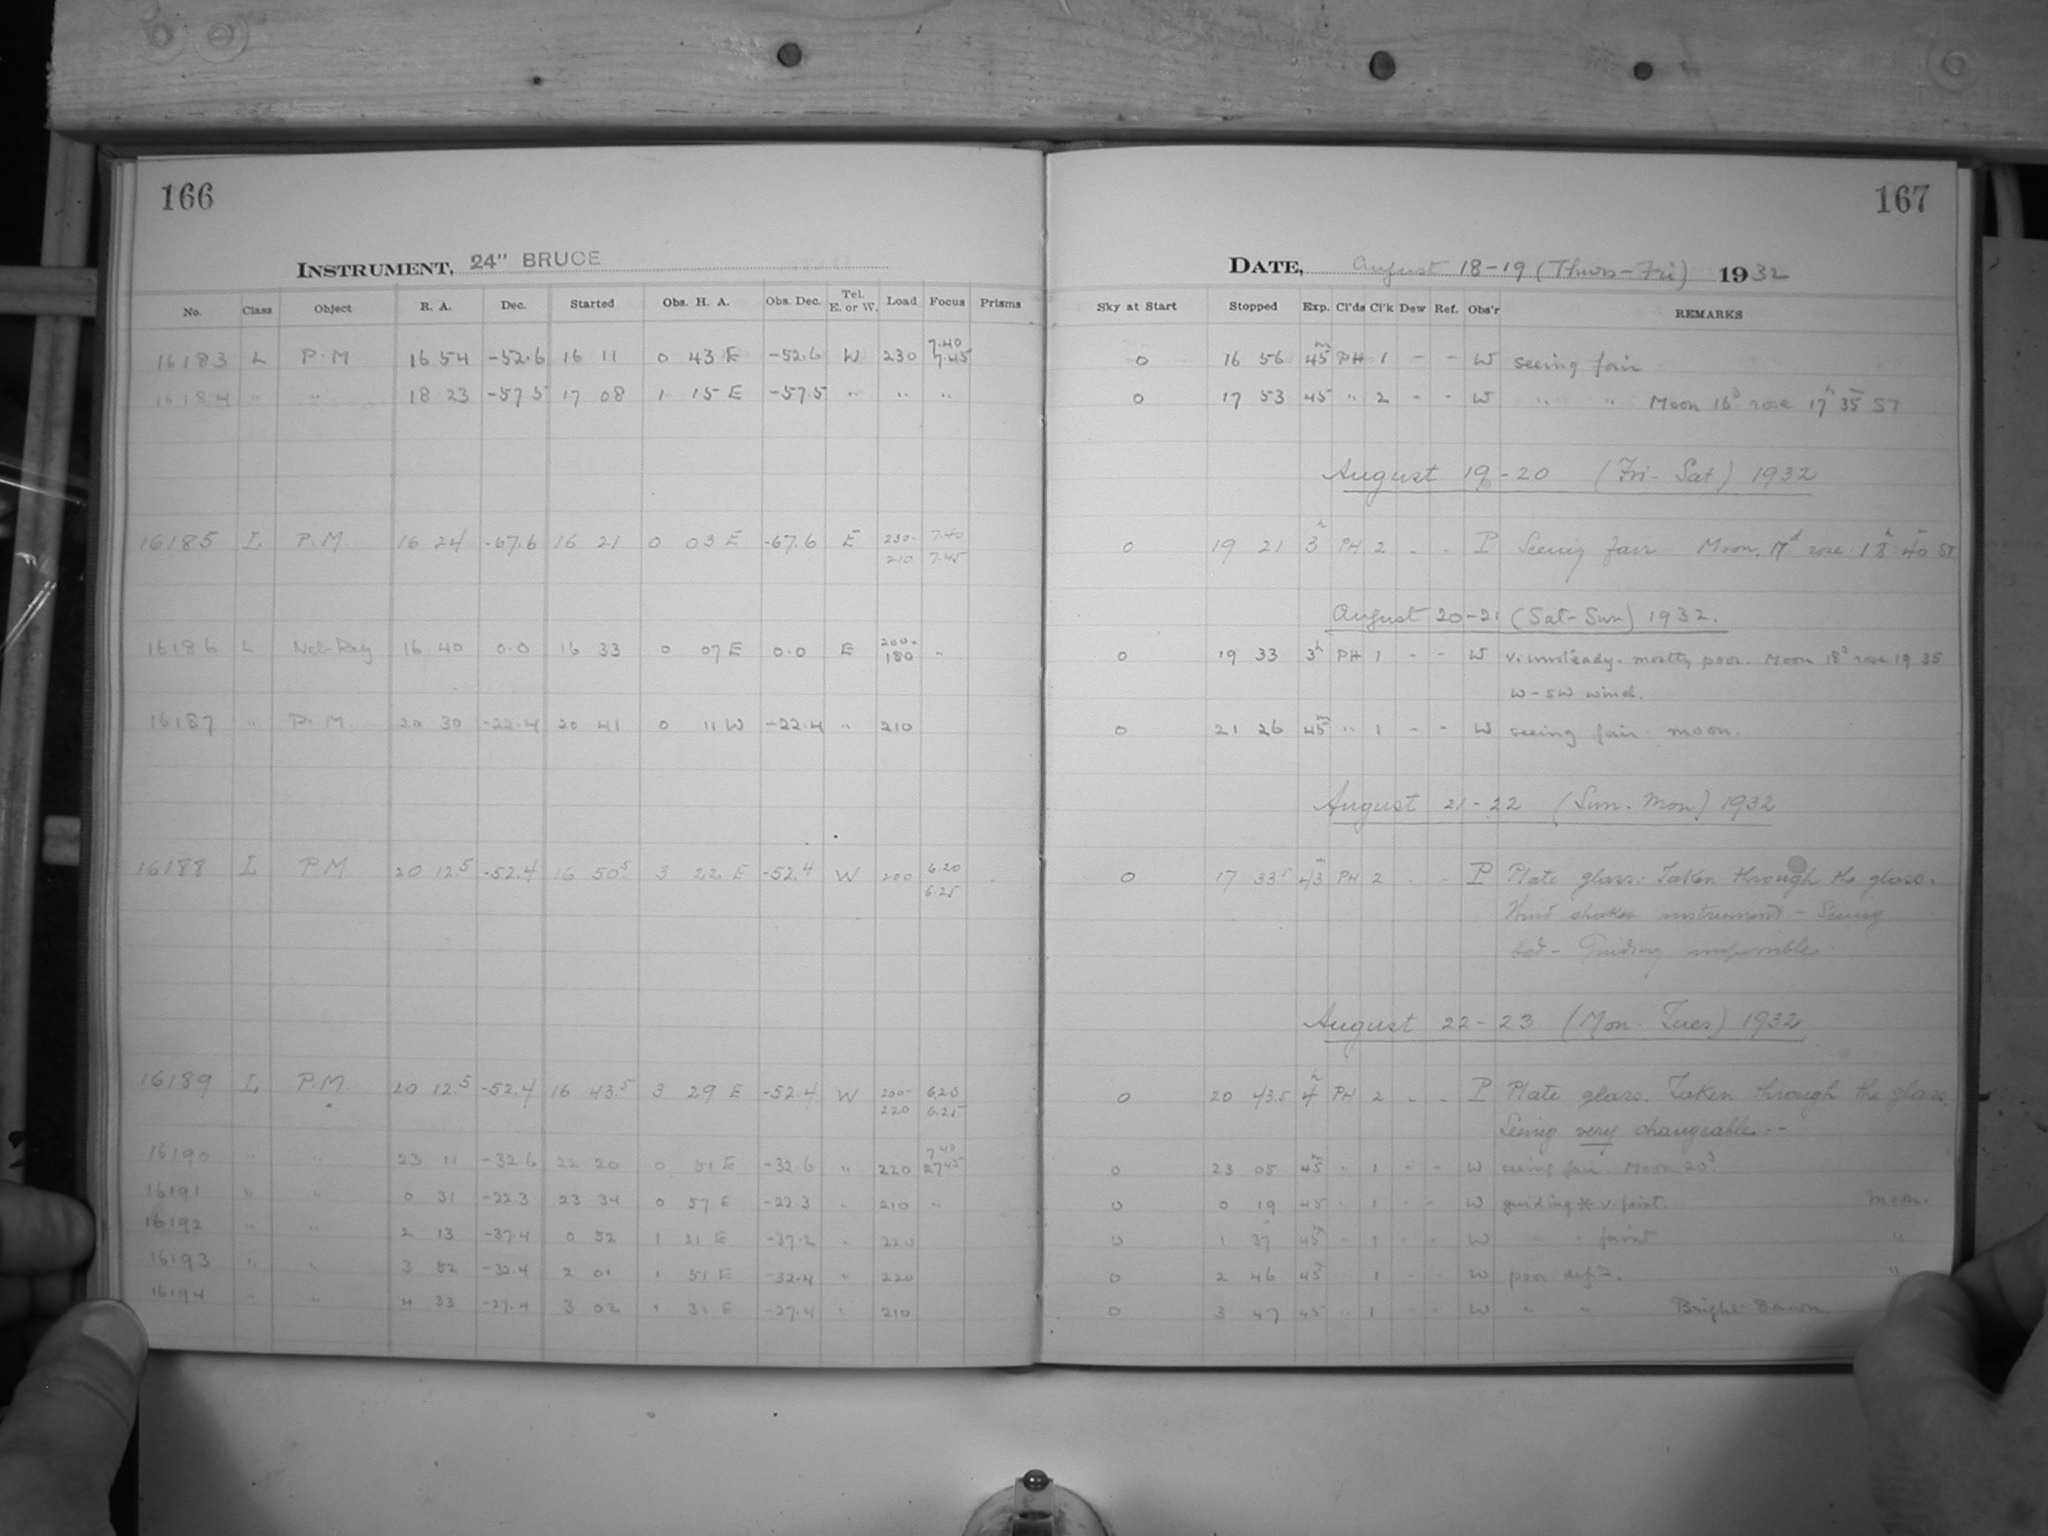 166
INSTRUMENT, 24" BRUCE
No. Class Object R. A. Dec. Started Obs. H. A. Obs. Dec. Tel. E. or W. Load Focus Prisms
16183 L P.M 16 54 -52.6 16 11 0 43 E -52.6 W 230 7.40 7.45
16184 " " 18 23 -57.5 17 08 1 15 E -57.5 " " "
16185 L P.M. 16 24 -67.6 16 21 0 03 E -67.6 E 230- 210 7.40 7.45
16186 L Neb. Reg 16 40 0.0 16 33 0 07 E 0.0 E 200- 180 "
16187 " P.M. 20 30 -22.4 20 41 0 11 W -22.4 " 210
16188 L P.M 20 12.5 -52.4 16 50.5 3 22 E -52.4 W 200 6.20 6.25
16189 L P.M. 20 12.5 -52.4 16 43.5 3 29 E -52.4 W 200- 220 6.20 6.25
16190 " " 23 11 -32.6 22 20 0 51 E -32.6 " 220 7.40 7.45
16191 " " 0 31 -22.3 23 34 0 57 E -22.3 " 210 "
16192 " " 2 13 -37.4 0 52 1 21 E -37.2 " 220
16193 " " 3 52 -32.4 2 01 1 51 E -32.4 " 220
16194 " " 4 33 -27.4 3 02 1 31 E -27.4 " 210
167
DATE, August 18-19 (Thurs-Fri) 1932
Sky at Start Stopped Exp. Cl'ds Cl'k Dew Ref. Obs'r REMARKS
0 16 56 45m PH 1 - - W seeing fair
0 17 53 45 " 2 - - W " " Moon 16d rose 17h 35m ST
August 19-20 (Fri-Sat) 1932
0 19 21 3h PH 2 - - P Seeing fair Moon 17d rose 18h 40m ST
August 20-21 (Sat-Sun) 1932.
0 19 33 3h PH 1 - - W v. unsteady. mostly poor. Moon 18d rose 19 35
W-SW wind.
0 21 26 45m " 1 - - W seeing fair. moon.
August 21-22 (Sun-Mon) 1932
0 17 33.5 43m PH 2 - - P Plate glass. Taken through the glass.
Wind shakes instrument - Seeing
bad - Guiding impossible.
August 22-23 (Mon-Tues) 1932
0 20 43.5 4h PH 2 - - P Plate glass. Taken through the glass.
Seeing very changeable. -
0 23 05 45m " 1 - - W seeing fair. Moon 20d.
0 0 19 45 " 1 - - W guiding * v. faint. moon.
0 1 37 45 " 1 - - W " " faint "
0 2 46 45 " 1 - - W poor defn. "
0 3 47 45 " 1 - - W " " Bright Dawn